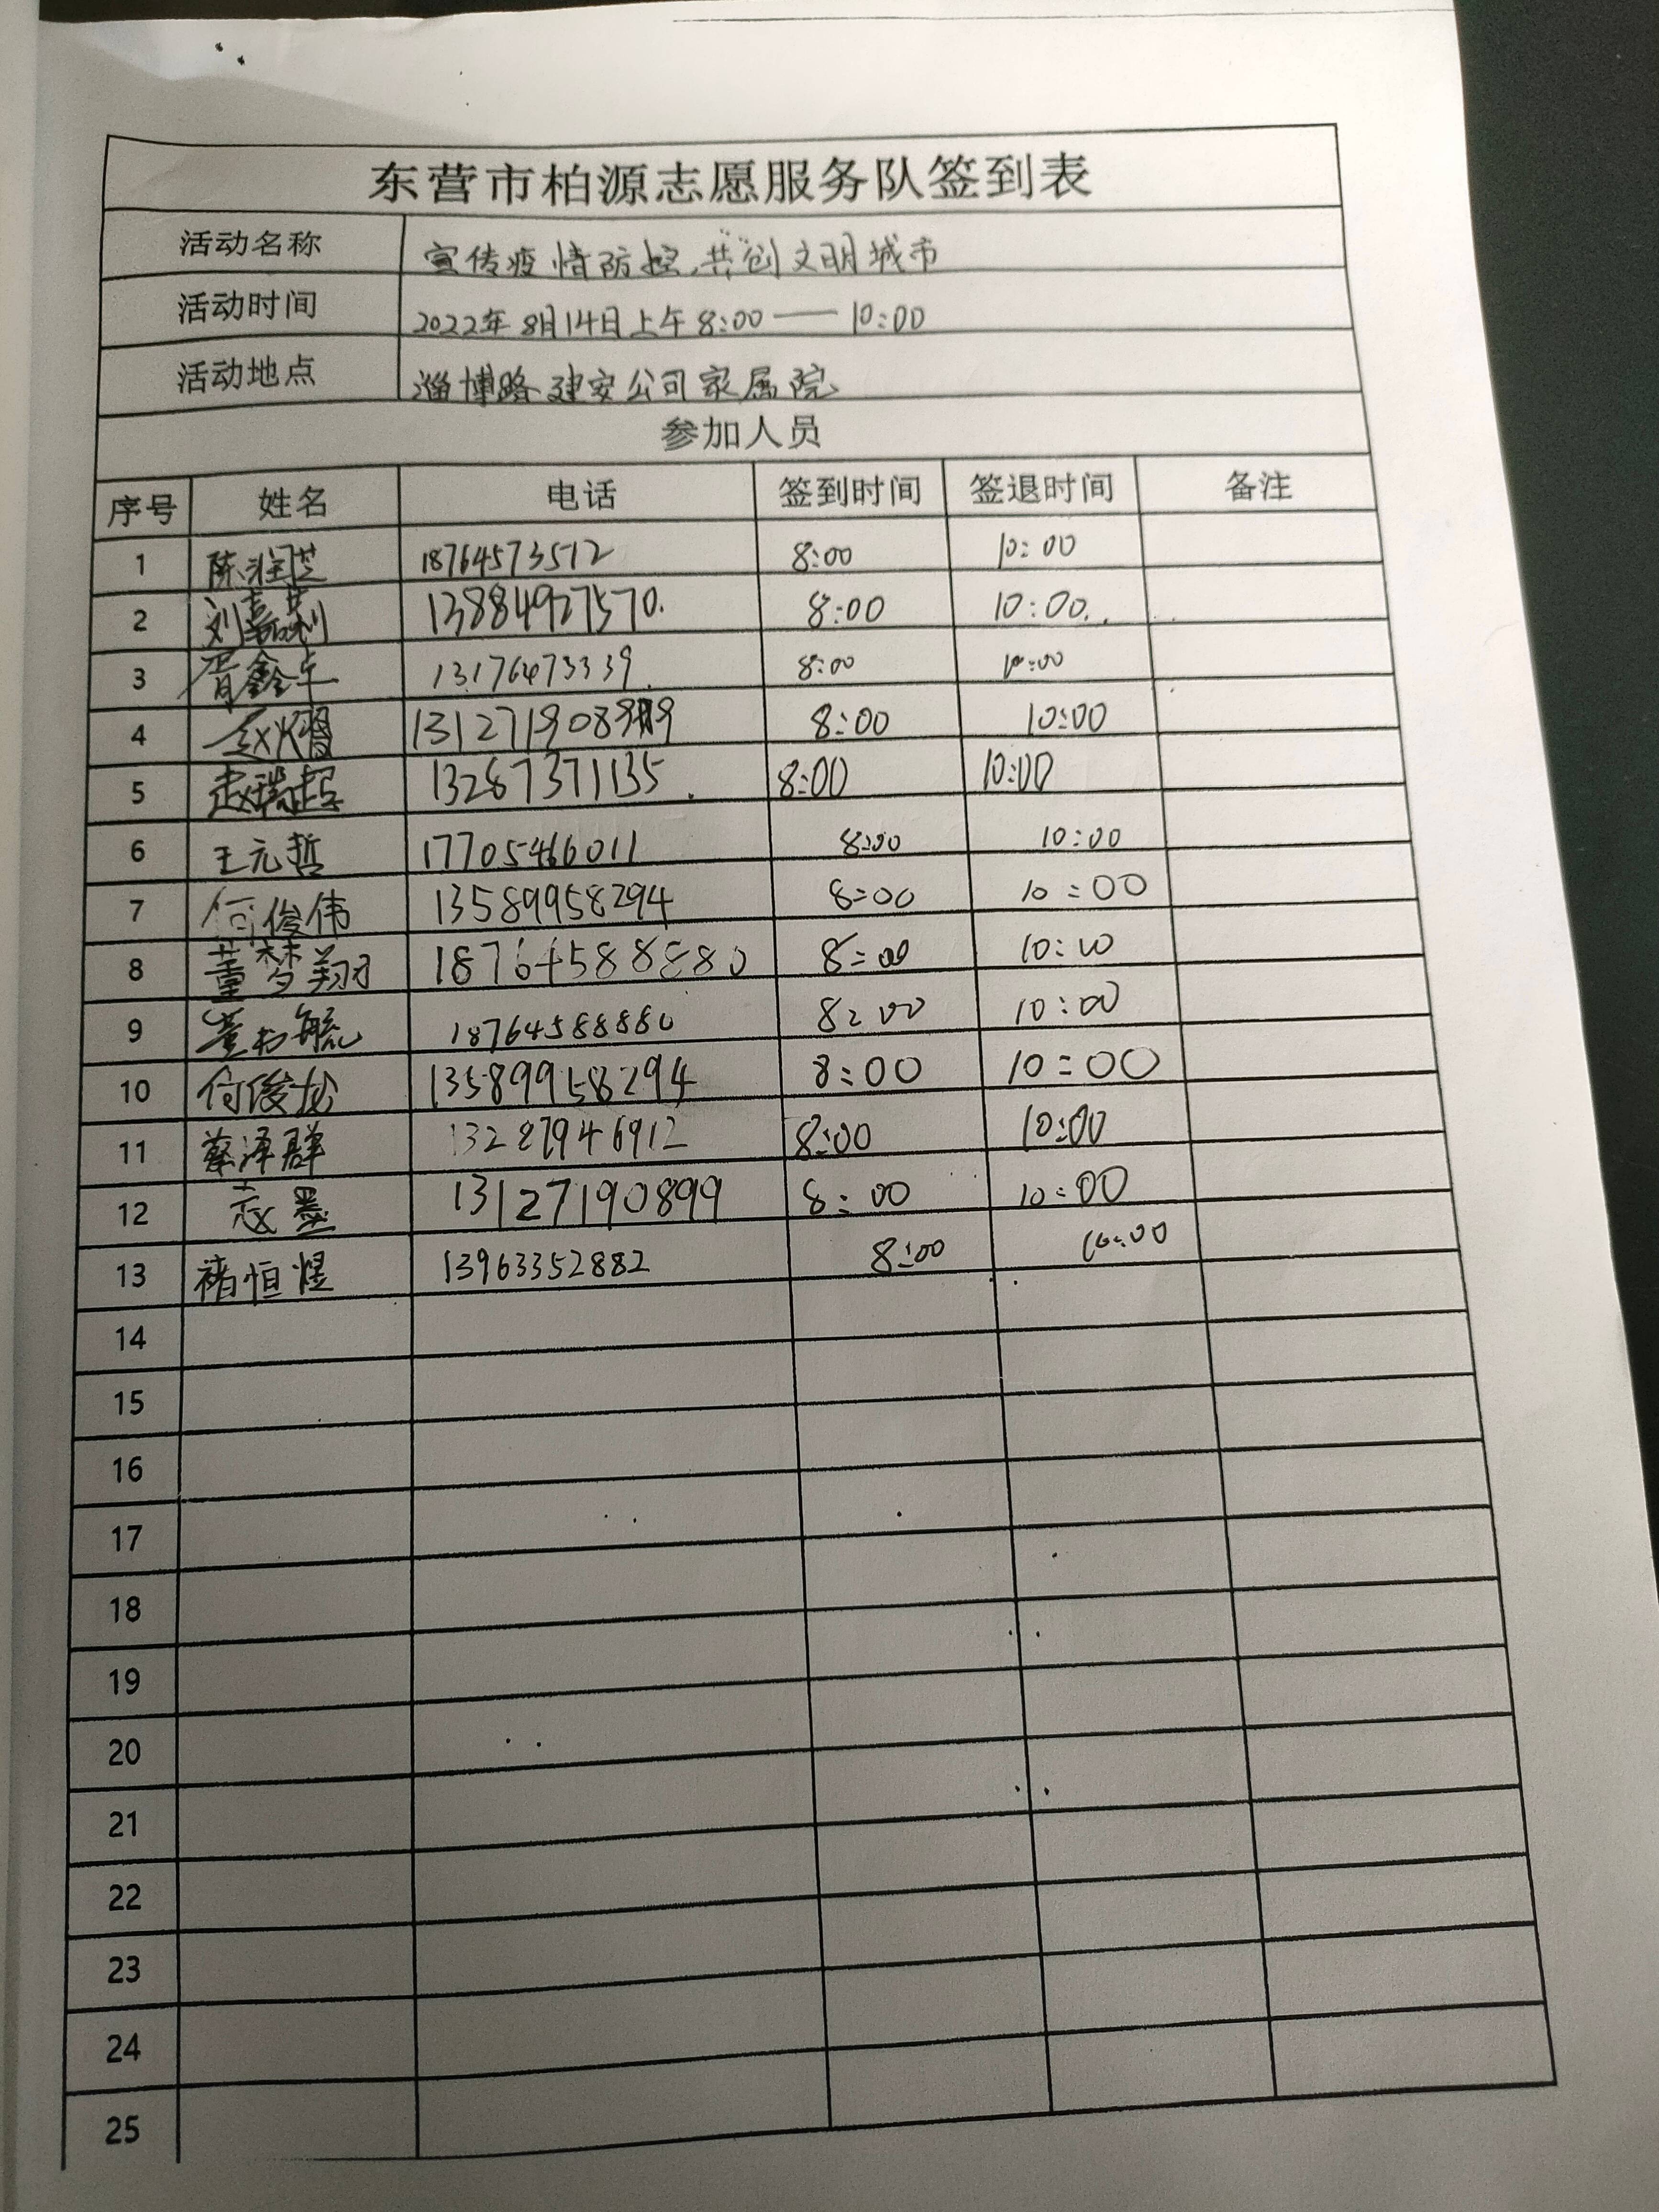 东营市柏源志愿服务队签到表
活动名称 宣传疫情防控,共创文明城市
活动时间 2022年8月14日上午8:00——10:00
活动地点 淄博路建安公司家属院
参加人员
序号 姓名 电话 签到时间 签退时间 备注
1 陈润芝 18764573512 8:00 10:00
2 刘嘉 13884927570. 8:00 10:00.
3 胥鑫 13176473339. 8:00 10:00
4 8:00 10:00
5 赵瑞 13287371135. 8:00 10:00
6 王元哲 17705466011 8:00 10:00
7 何俊伟 13589958294 8:00 10:00
8 董梦翔 18764588880 8:00 10:00
9 董 毓 18764588880 8:00 10:00
10 何俊龙 13589958294 8:00 10:00
11 蔡泽群 13287946912 8:00 10:00
12 墨 13127190899 8:00 10:00
13 褚恒煜 13963352882 8:00 10:00
14
15
16
17
18
19
20
21
22
23
24
25